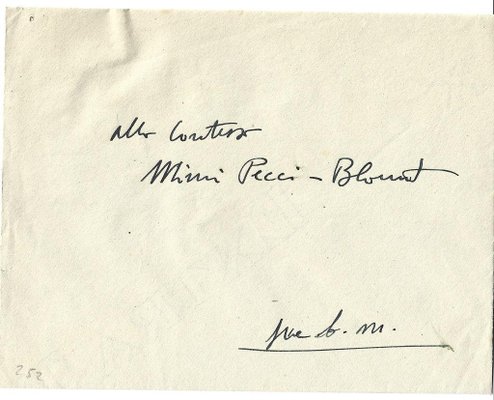 alla Contessa
Mimi Pecci-Blount
s.p.m.
252